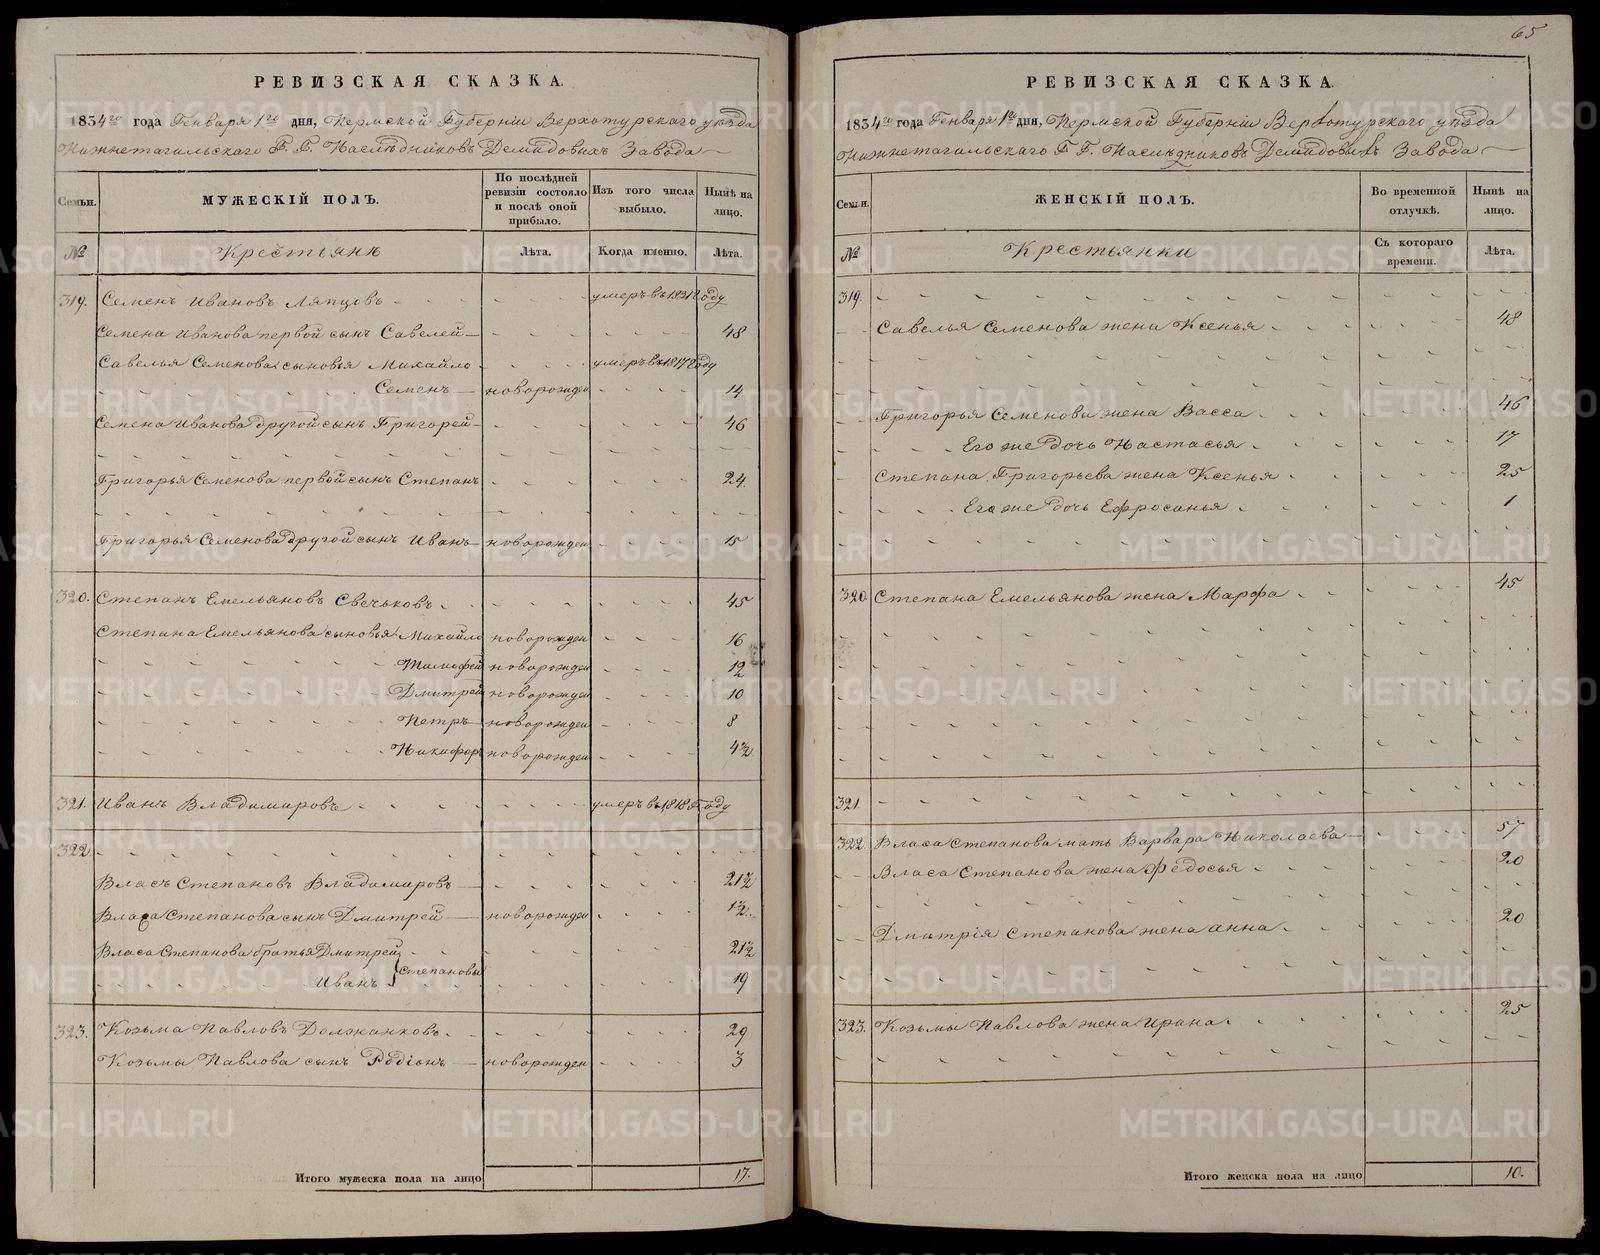 65
РЕВИЗСКАЯ СКАЗКА.
1834го года Генваря 1го дня, Пермской Губерніи Верхотурскаго уѣзда
Нижнетагильскаго Г. Г. Наслѣдниковъ Демидовыхъ Завода
Семьи.
МУЖЕСКІЙ ПОЛЪ.
По послѣдней ревизіи состояло и послѣ оной прибыло.
Изъ того числа выбыло.
Нынѣ на лицо.
№ Крестьянъ Лѣта. Когда именно. Лѣта.
319. Семенъ Ивановъ Ляпцовъ умеръ въ 1831 году
Семена Иванова первой сынъ Савелей 48
Савелья Семенова сыновья Михайло умеръ въ 1817 году
Семенъ новорожден 14
Семена Иванова другой сынъ Григорей 46
Григорья Семенова первой сынъ Степанъ 24
Григорья Семенова другой сынъ Иванъ новорожден 15
320. Степанъ Емельяновъ Свечьковъ 45
Степана Емельянова сыновья Михайло новорожден 16
Тимофей новорожден 12
Дмитрей новорожден 10
Петръ новорожден 8
Никифоръ новорожден 4½
321. Иванъ Владимировъ умеръ въ 1818 году
322.
Власъ Степановъ Владимировъ 21½
Власа Степанова сынъ Дмитрей новорожден ½
Власа Степанова братья Дмитрей 21½
Иванъ } Степановы 19
323. Козьма Павловъ Должанковъ 29
Козьмы Павлова сынъ Родіонъ новорожден 3
Итого мужеска пола на лицо 17.
РЕВИЗСКАЯ СКАЗКА.
1834го года Генваря 1го дня, Пермской Губерніи Верхотурскаго уѣзда
Нижнетагильскаго Г. Г. Наслѣдниковъ Демидовыхъ Завода
Семьи.
ЖЕНСКІЙ ПОЛЪ.
Во временной отлучкѣ.
Нынѣ на лицо.
№ Крестьянки Съ котораго времени. Лѣта.
319.
Савелья Семенова жена Ксенья 48
Григорья Семенова жена Васса 46
Его же дочь Настасья 17
Степана Григорьева жена Ксенья 25
Его же дочь Ефросанья 1
320 Степана Емельянова жена Марфа 45
321
322. Власа Степанова мать Варвара Николаева 57
Власа Степанова жена Федосья 20
Дмитрія Степанова жена Анна 20
323. Козьмы Павлова жена Ирина 25
Итого женска пола на лицо 10.
METRIKI.GASO-URAL.RU